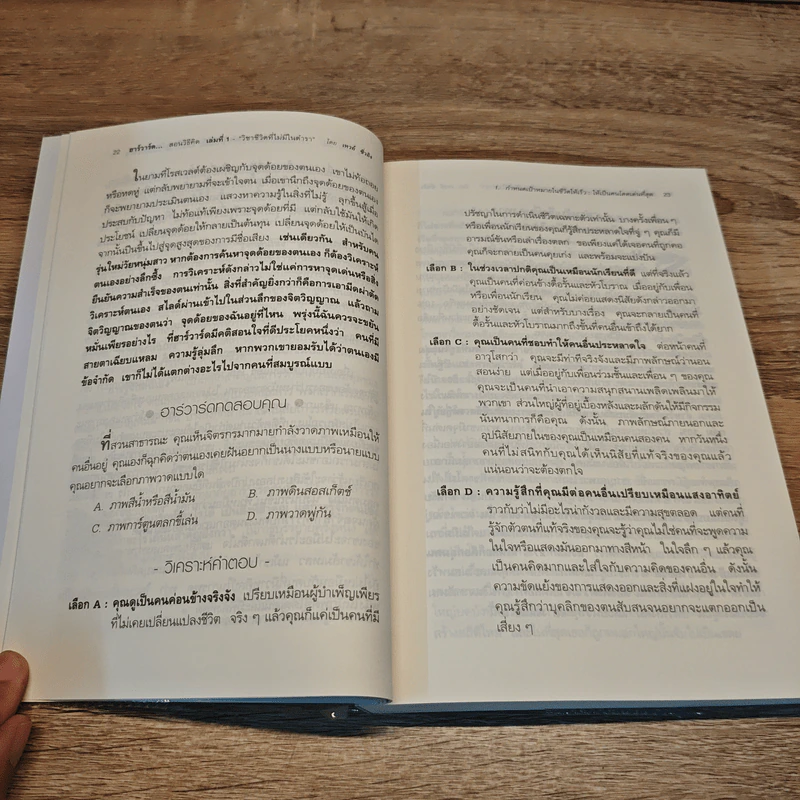 22 ฮาร์วาร์ด... สอนวิธีคิด เล่มที่ 1 - "วิชาชีวิตที่ไม่มีในตำรา" โดย
ในยามที่โรสเวลต์ต้องเผชิญกับจุดด้อยของตนเอง เขาไม่ท้อถอย
หรือหดหู่ แต่กลับพยายามที่จะเข้าใจตน เมื่อเขานึกถึงจุดด้อยของตนเอง
ก็จะพยายามประเมินตนเอง แสวงหาความรู้ในสิ่งที่ไม่รู้ ลุกขึ้นสู้เมื่อ
ประสบกับปัญหา ไม่ท้อแท้เพียงเพราะจุดด้อยที่มี แต่กลับใช้มันให้เกิด
ประโยชน์ เปลี่ยนจุดด้อยให้กลายเป็นต้นทุน เปลี่ยนจุดด้อยให้เป็นบันได
จากนั้นปีนขึ้นไปสู่จุดสูงสุดของการมีชื่อเสียง เช่นเดียวกัน สำหรับคน
รุ่นใหม่วัยหนุ่มสาว หากต้องการค้นหาจุดด้อยของตนเอง ก็ต้องวิเคราะห์
ตนเองอย่างลึกซึ้ง การวิเคราะห์ดังกล่าวไม่ใช่แค่การหาจุดเด่นหรือสิ่ง
ยืนยันความสำเร็จของตนเท่านั้น สิ่งที่สำคัญยิ่งกว่าก็คือการเอามีดผ่าตัด
วิเคราะห์ตนเอง สไลด์ผ่านเข้าไปในส่วนลึกของจิตวิญญาณ แล้วถาม
จิตวิญญาณของตนว่า จุดด้อยของฉันอยู่ที่ไหน พรุ่งนี้ฉันควรจะขยัน
หมั่นเพียรอย่างไร ที่ฮาร์วาร์ดมีคติสอนใจที่ดีประโยคหนึ่งว่า คนที่มี
สายตาเฉียบแหลม ความรู้ลุ่มลึก หากพวกเขายอมรับได้ว่าตนเองมี
ข้อจำกัด เขาก็ไม่ได้แตกต่างอะไรไปจากคนที่สมบูรณ์แบบ
อาร์วาร์ดทดสอบคุณ
ที่สวนสาธารณะ คุณเห็นจิตรกรมากมายกำลังวาดภาพเหมือนให้
คนอื่นอยู่ คุณเองก็ฉุกคิดว่าตนเองเคยฝันอยากเป็นนางแบบหรือนายแบบ
คุณอยากจะเลือกภาพวาดแบบใด
A. ภาพสีน้ำหรือสีน้ำมัน B. ภาพดินสอสเก็ตช์
C. ภาพการ์ตูนตลกขี้เล่น D. ภาพวาดพู่กัน
- วิเคราะห์คำตอบ -
เลือก A : คุณดูเป็นคนค่อนข้างจริงจัง เปรียบเหมือนผู้บำเพ็ญเพียร
ที่ไม่เคยเปลี่ยนแปลงชีวิต จริง ๆ แล้วคุณก็แค่เป็นคนที่มี
1. กำหนดเป้าหมายในชีวิตให้เร็ว : ได้เป็นคนโดดเด่นที่สุด 23
ปรัชญาในการดำเนินชีวิตเฉพาะตัวเท่านั้น บางครั้งเพื่อน ๆ
หรือเพื่อนนักเรียนของคุณก็รู้สึกประหลาดใจที่จู่ ๆ คุณก็มี
อารมณ์ขันหรือเล่าเรื่องตลก ขอเพียงแค่ได้เจอคนที่ถูกคอ
คุณก็จะกลายเป็นคนคุยเก่ง และพร้อมจะแบ่งปัน
เลือก B : ในช่วงเวลาปกติคุณเป็นเหมือนนักเรียนที่ดี แต่ที่จริงแล้ว
คุณเป็นคนที่ค่อนข้างดื้อรั้นและหัวโบราณ เมื่ออยู่กับเพื่อน
หรือเพื่อนนักเรียน คุณไม่ค่อยแสดงนิสัยดังกล่าวออกมา
อย่างชัดเจน แต่สำหรับบางเรื่อง คุณจะกลายเป็นคนที่
ดื้อรั้นและหัวโบราณมากถึงขั้นที่คนอื่นเข้าถึงได้ยาก
เลือก C : คุณเป็นคนที่ชอบทำให้คนอื่นประหลาดใจ ต่อหน้าคนที่
อาวุโสกว่า คุณจะมีท่าทีจริงจังและมีภาพลักษณ์ว่านอน
สอนง่าย แต่เมื่ออยู่กับเพื่อนร่วมชั้นและเพื่อน ๆ ของคุณ
คุณจะเป็นคนที่นำเอาความสนุกสนานเพลิดเพลินมาให้
พวกเขา ส่วนใหญ่ผู้ที่อยู่เบื้องหลังและผลักดันให้มีกิจกรรม
นันทนาการก็คือคุณ ดังนั้น ภาพลักษณ์ภายนอกและ
อุปนิสัยภายในของคุณเป็นเหมือนคนสองคน หากวันหนึ่ง
คนที่ไม่สนิทกับคุณได้เห็นนิสัยที่แท้จริงของคุณแล้ว
แน่นอนว่าจะต้องตกใจ
เลือก D : ความรู้สึกที่คุณมีต่อคนอื่นเปรียบเหมือนแสงอาทิตย์
ราวกับว่าไม่มีอะไรน่ากังวลและมีความสุขตลอด แต่คนที่
รู้จักตัวตนที่แท้จริงของคุณจะรู้ว่าคุณไม่ใช่คนที่จะพูดความ
ในใจหรือแสดงมันออกมาทางสีหน้า ในใจลึก ๆ แล้วคุณ
เป็นคนคิดมากและใส่ใจกับความคิดของคนอื่น ดังนั้น
ความขัดแย้งของการแสดงออกและสิ่งที่แฝงอยู่ในใจทำให้
คุณรู้สึกว่าบุคลิกของตนสับสนจนอยากจะแตกออกเป็น
เสี่ยง ๆ